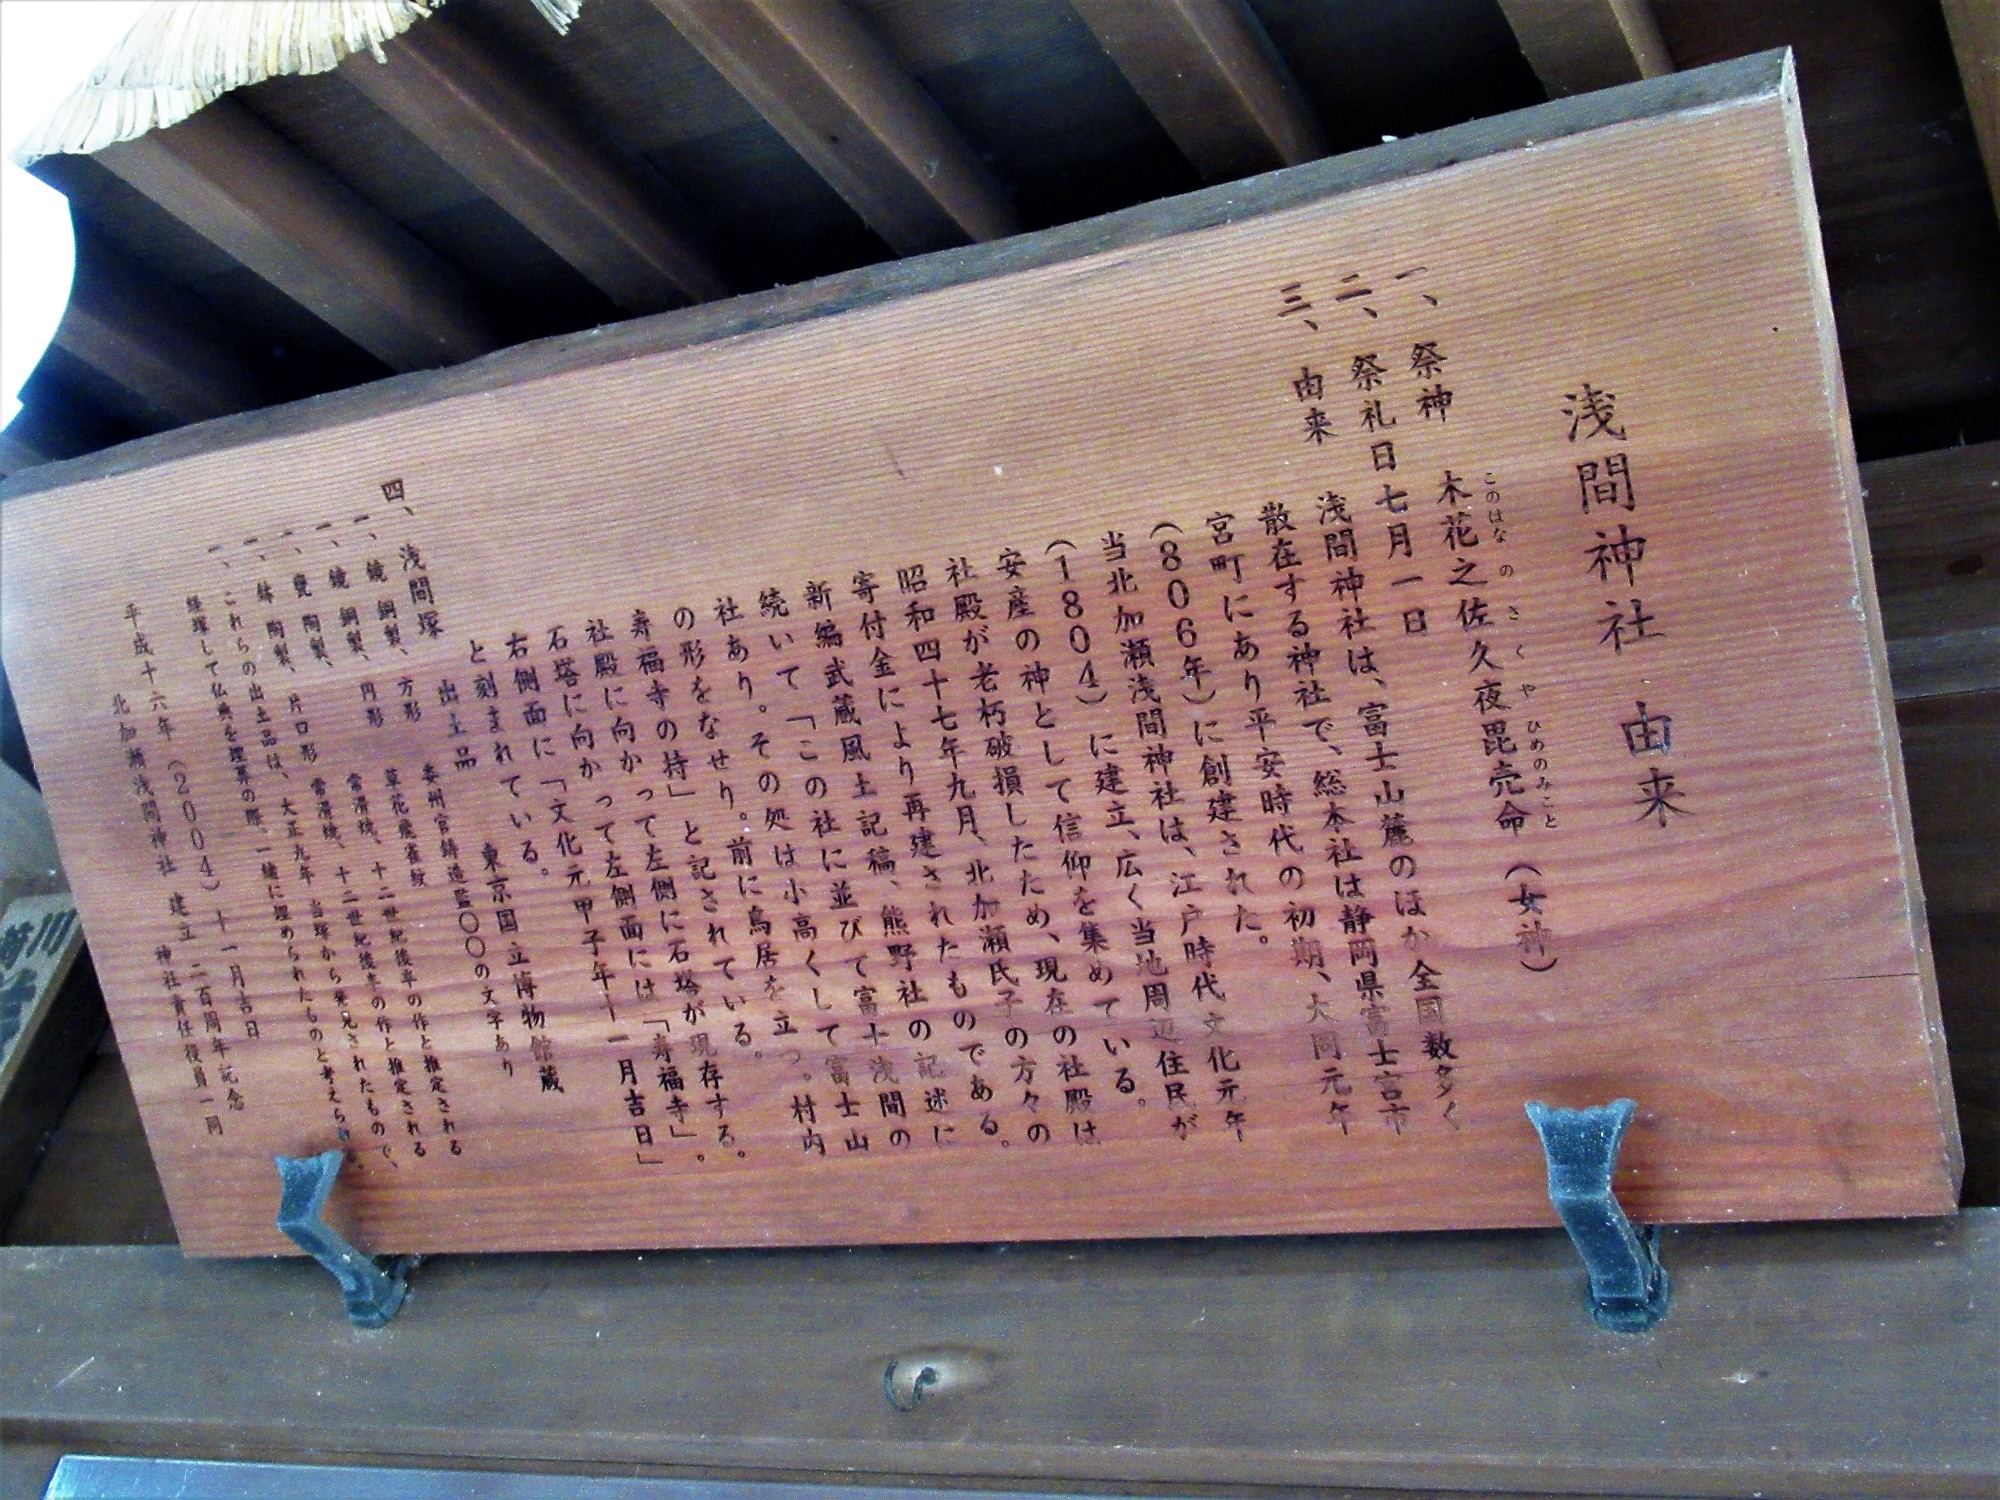 浅間神社 由来
一、祭神 木花之佐久夜毘売命(女神)
このはな の さ く や ひめのみこと
二、祭礼日 七月一日
三、由来 浅間神社は、富士山麓のほか全国数多く
散在する神社で、総本社は静岡県富士宮市
宮町にあり平安時代の初期、大同元年
(806年)に創建された。
当北加瀬浅間神社は、江戸時代文化元年
(1804)に建立、広く当地周辺住民が
安産の神として信仰を集めている。
社殿が老朽破損したため、現在の社殿は
昭和四十七年九月、北加瀬氏子の方々の
寄付金により再建されたものである。
新編武蔵風土記稿、熊野社の記述に
続いて「この社に並びて富士浅間の
社あり。その処は小高くして富士山
の形をなせり。前に鳥居を立つ。村内
寿福寺の持」と記されている。
社殿に向かって左側に石塔が現存する。
石塔に向かって左側面には「寿福寺」。
右側面に「文化元甲子年十一月吉日」
と刻まれている。
四、浅間塚 出土品 東京国立博物館蔵
一、鏡 銅製、方形 秦州官鋳造監〇〇の文字あり
一、鏡 銅製、円形 草花飛雀紋
一、甕 陶製、 常滑焼、十二世紀後半の作と推定される
一、鉢 陶製、片口形 常滑焼、十二世紀後半の作と推定される
一、これらの出土品は、大正九年 当塚から発見されたもので、
経塚して仏典を埋葬の際、一緒に埋められたものと考えられる。
平成十六年(2004)十一月吉日
北加瀬浅間神社 建立 二百周年記念
神社責任役員一同